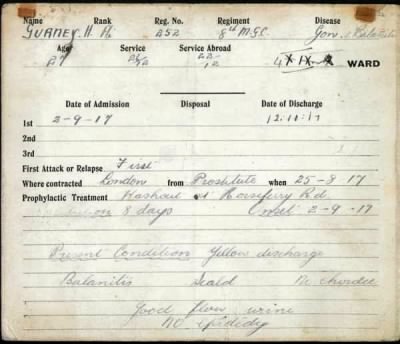 Name Rank Reg. No. Regiment Disease
GURNEY. H. 252 8th M.G.C. Gon. & Balanitis
Age Service Service Abroad
27 WARD
Date of Admission Disposal Date of Discharge
1st 2-9-17 12.11.17
2nd
3rd
First Attack or Relapse First
Where contracted London from Prostitute when 25-8-17
Prophylactic Treatment Washout at Horseferry Rd.
8 days Onset 2-9-17
Present Condition Yellow discharge
Balanitis Scald No chordee
Good flow urine
No epididy